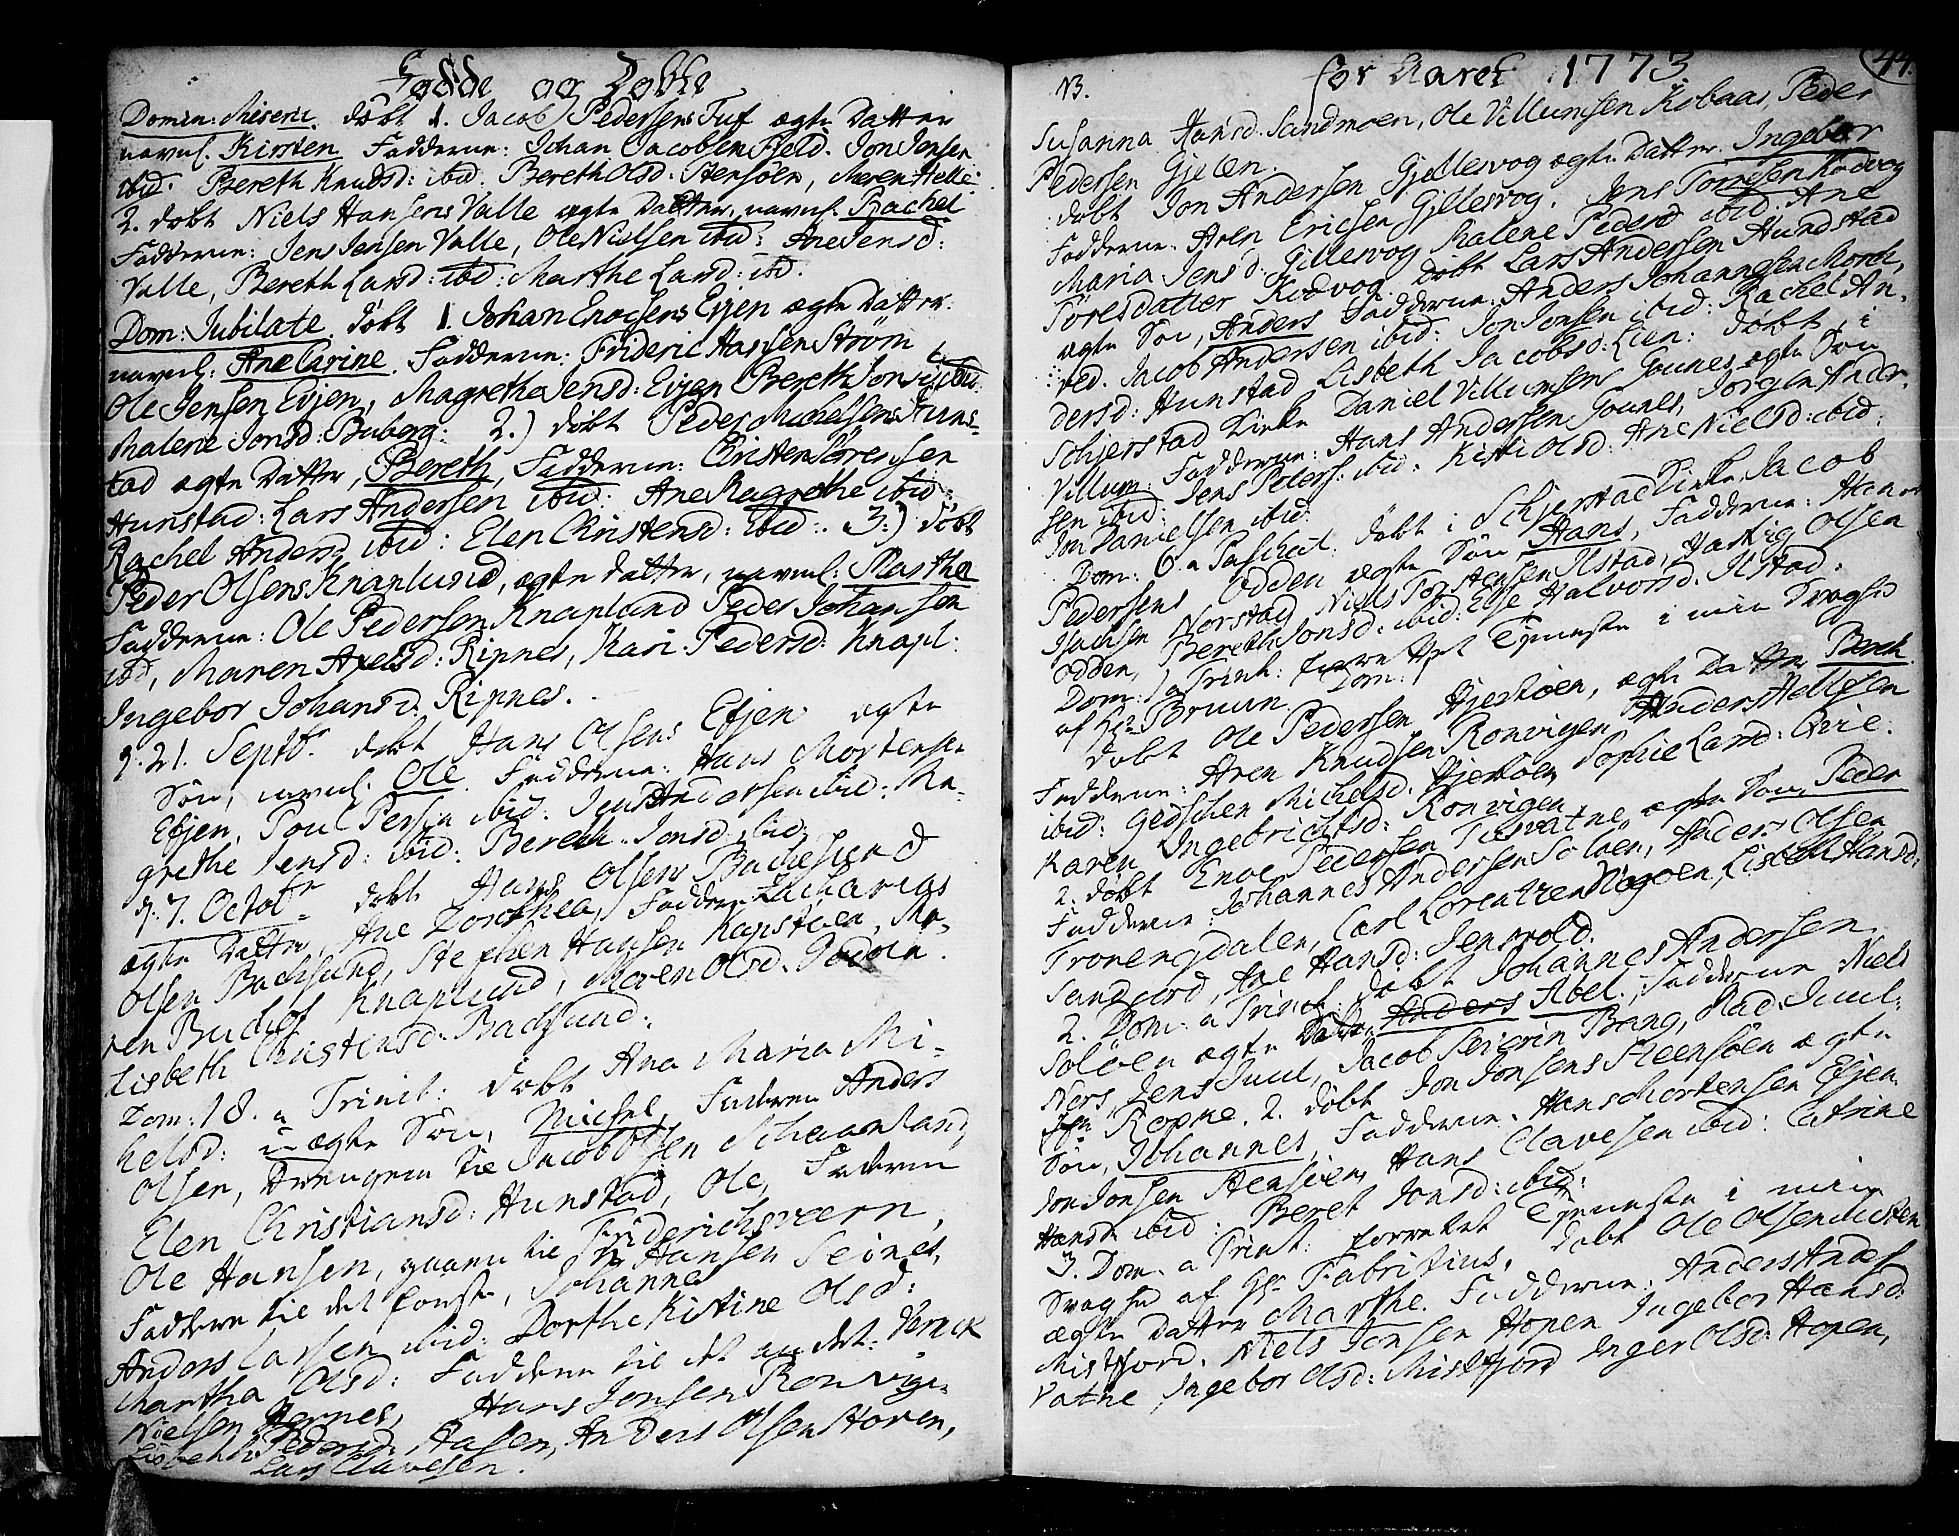 Fødde og Døbte
Domin: Miseric. døbt 1. Jacob Pedersens Tuf ægte Datter
navnl. Kirsten Fadderne: Johan Jacobsen Fjeld. Jon Jensen
ibid. Bereth Knudsd: ibid. Bereth Olsd: Stensöen, Meren Helle-
2. døbt Niels Hansens Valle ægte Datter, navnl. Rachel
Fadderne: Jens Jensen Valle, Ole Nielsen ibid: Ane Jensd:
Valle, Bereth Larsd: ibid: Marthe Larsd: ibd.
Dom: Jubilate døbt 1. Johan Enochsens Evjen ægte Datter.
navnl: Ane Carine. Fadderne: Frideric Hansen Ström
Ole Jensen Evjen, Magretha Jensd: Evjen Bereth Jonsd: ibid:
Malene Jonsd: Buborg: 2.) døbt Peder Michelsens Huns-
tad ægte Datter, Bereth, Fadderne: Christen Sörensen
Hunstad: Lars Andersen ibid: Ane Magrethe ibid:
Rachel Andersd ibid: Elen Christensd: ibid: 3.) døbt
Peder Olsens Knaplund, ægte Datter, navnl: Marthe
Fadderne: Ole Pedersen Knaplund Peder Johansen
ibd, Maren Axelsd: Ripnes, Kari Pedersd: Knapl:
Ingebor Johansd: Ripnes.
d. 21. Septbr døbt Hans Olsens Efjen ægte
Søn, navnl. Ole Fadderne: Hans Mortensen
Efjen, Poul Persen ibid: Jens Andersen ibid: Ma-
grethe Jensd: ibid: Bereth Jonsd: ibid:
d. 7. Octobr døbt Hans Olsens Bachesund
ægte Datter, Ane Dorothea, Fadder Zacharias
Olsen Bachsund, Stephen Hansen Kapstöen, Ma-
ren Knaplund, Maren Olsd. Godöen.
Lisbeth Christensd: Bachsund.
Dom: 18. a Trinit: døbt Ana Maria Mi-
kelsd: uægte Søn, Michel, Faderen Anders
Olsen, Drengen til Jacob Olsen Schaanland,
Elen Christiansd: Hunstad, Ole, Faderen
Ole Hansen, gaaen til Friderichsværn,
Faddere til det første, Johannes Hansen Seines,
Anders Larsen ibid: Dorthe Kistine Olsd:
Martha Olsd: Faddere til det andet:
Nielsen Hernes, Hans Jonsen Ronvigen
Lisbeth Pedersd: Hasen, Anders Olsen Storen,
Lars Clavesen.
for Aaret 1773
44.
N3.
Susanna Hansd. Sandmoen, Ole Villumsen Kobaas, Peder
Pedersen Gjelen.
døbt Jon Andersen Gjellesvog ægte Datter, Ingebor
Fadderne: Aren Ericsen Gillesvog. Jens Torresen Kodvog
Maria Jensd: Gillesvog Malene Pedersd ibid. Ane
Töresdatter Kodvog. døbt Lars Andersen Hundstad
ægte Søn, Anders Fadderne: Anders Johannesen Morck,
ved. Jacob Andersen ibid: Jon Jonsen ibid: Rachel An-
dersd: Hunstad Lisbeth Jacobsd: Lien: døbt i
Schjerstad Kirke Daniel Villumsens Gounes, ægte Søn
Villum: Fadderne: Hans Andersen Gounes, Jörgen Ander-
sen ibid: Jens Peters: ibid. Kisti Olsd: Ane Nielsd: ibid:
Jon Danielsen ibid:
Dom: 6. a Paschat. døbt i Schjerstad Kirke Jacob
Pedersens Odden ægte Søn Hans, Fadderne: Hans
Hansen Norstad Niels Torstensen Ilstad, Hartvig Olsen
Odden, Bereth Jonsd: ibid: Else Halvorsd: Ilstad.
Dom: 1 a Trinit: forrettet Tieneste i min Svaghed
af Hr: Bruun. Dom: 1
døbt Ole Pedersen Hjertöen, ægte Datter Bereth
Fadderne: Aren Knudsen Ronvigen, Anders Nellsen
ibid: Gedschen Michelsd. Hjertöen Sophie Larsd: Qvie.
Karen Ingebrichtsd: Ronvigen
2. døbt Enoc Pedersen Tusvatne, ægte Søn, Peder
Fadderne: Johannes Andersen Solöen, Anders Olsen
Tronengdalen, Carl Lorentzen Nögoen, Lisbeth Hansd:
Sandjord, Ane Hansd: Jensvold.
2. Dom: a Trinit: døbt Johannes Andersen
Solöen ægte Anders Abel. Fadderne Niels
Ners Jens Juul, Jacob Severin Bang, Mad: Juul:
Ropne. 2. døbt Jon Jonsens Steensöen ægte
Søn, Johannes, Fadderne: Hans Mortensen Efjen
Jon Jonsen Stensöen, Hans Clavesen ibid: Catrine
Hansd: ibid: Beret Jonsd: ibid:
3. Dom. a Trinit: forrettet Tieneste i min
Svaghed af Hr: Fabritius, døbt Ole Olsen
ægte Datter Marthe. Fadderne: Anders Anders
Mistfjord. Niels Jensen Hopen Ingebor Hansd:
Vatne, Ingebor Olsd: Mistfjord Inger Olsd: Hopen,